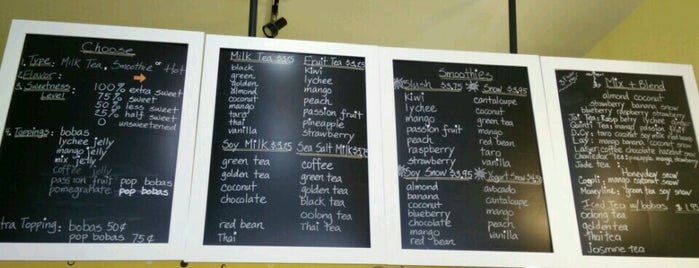 Choose
1. Type: Milk Tea, Smoothie or Hot
2. Flavor:
3. Sweetness Level:
100% extra sweet
75% sweet
50% less sweet
25% half sweet
0 unsweetened
4. Toppings: bobas
lychee jelly
mango jelly
mix jelly
coffee jelly
passion fruit pop bobas
pomegranate pop bobas
tra Topping: bobas 50¢
pop bobas 75¢
Milk Tea
black
green
golden
almond
coconut
mango
taro
thai
vanilla
Fruit Tea
kiwi
lychee
mango
peach
passion fruit
pineapple
strawberry
Soy Milk
green tea
golden tea
coconut
chocolate
red bean
Thai
Sea Salt Milk
coffee
green tea
golden tea
black tea
oolong tea
Thai Tea
Smoothies
Slush $3.75
Kiwi
lychee
mango
passion fruit
peach
raspberry
strawberry
Snow $3.95
cantaloupe
coconut
green tea
mango
red bean
taro
vanilla
Soy Snow $3.95
almond
banana
coconut
blueberry
chocolate
mango
red bean
Yogurt Snow
avocado
banana
cantaloupe
mango
peach
vanilla
Mix + Blend
almond coconut
strawberry banana snow
blueberry raspberry strawberry
passion fruit
mango banana coconut snow
Honeydew snow
mango coconut snow
Moneyline: green tea soy snow
Iced Tea w/bobas $1.95
oolong tea
golden tea
Thai tea
Jasmine tea